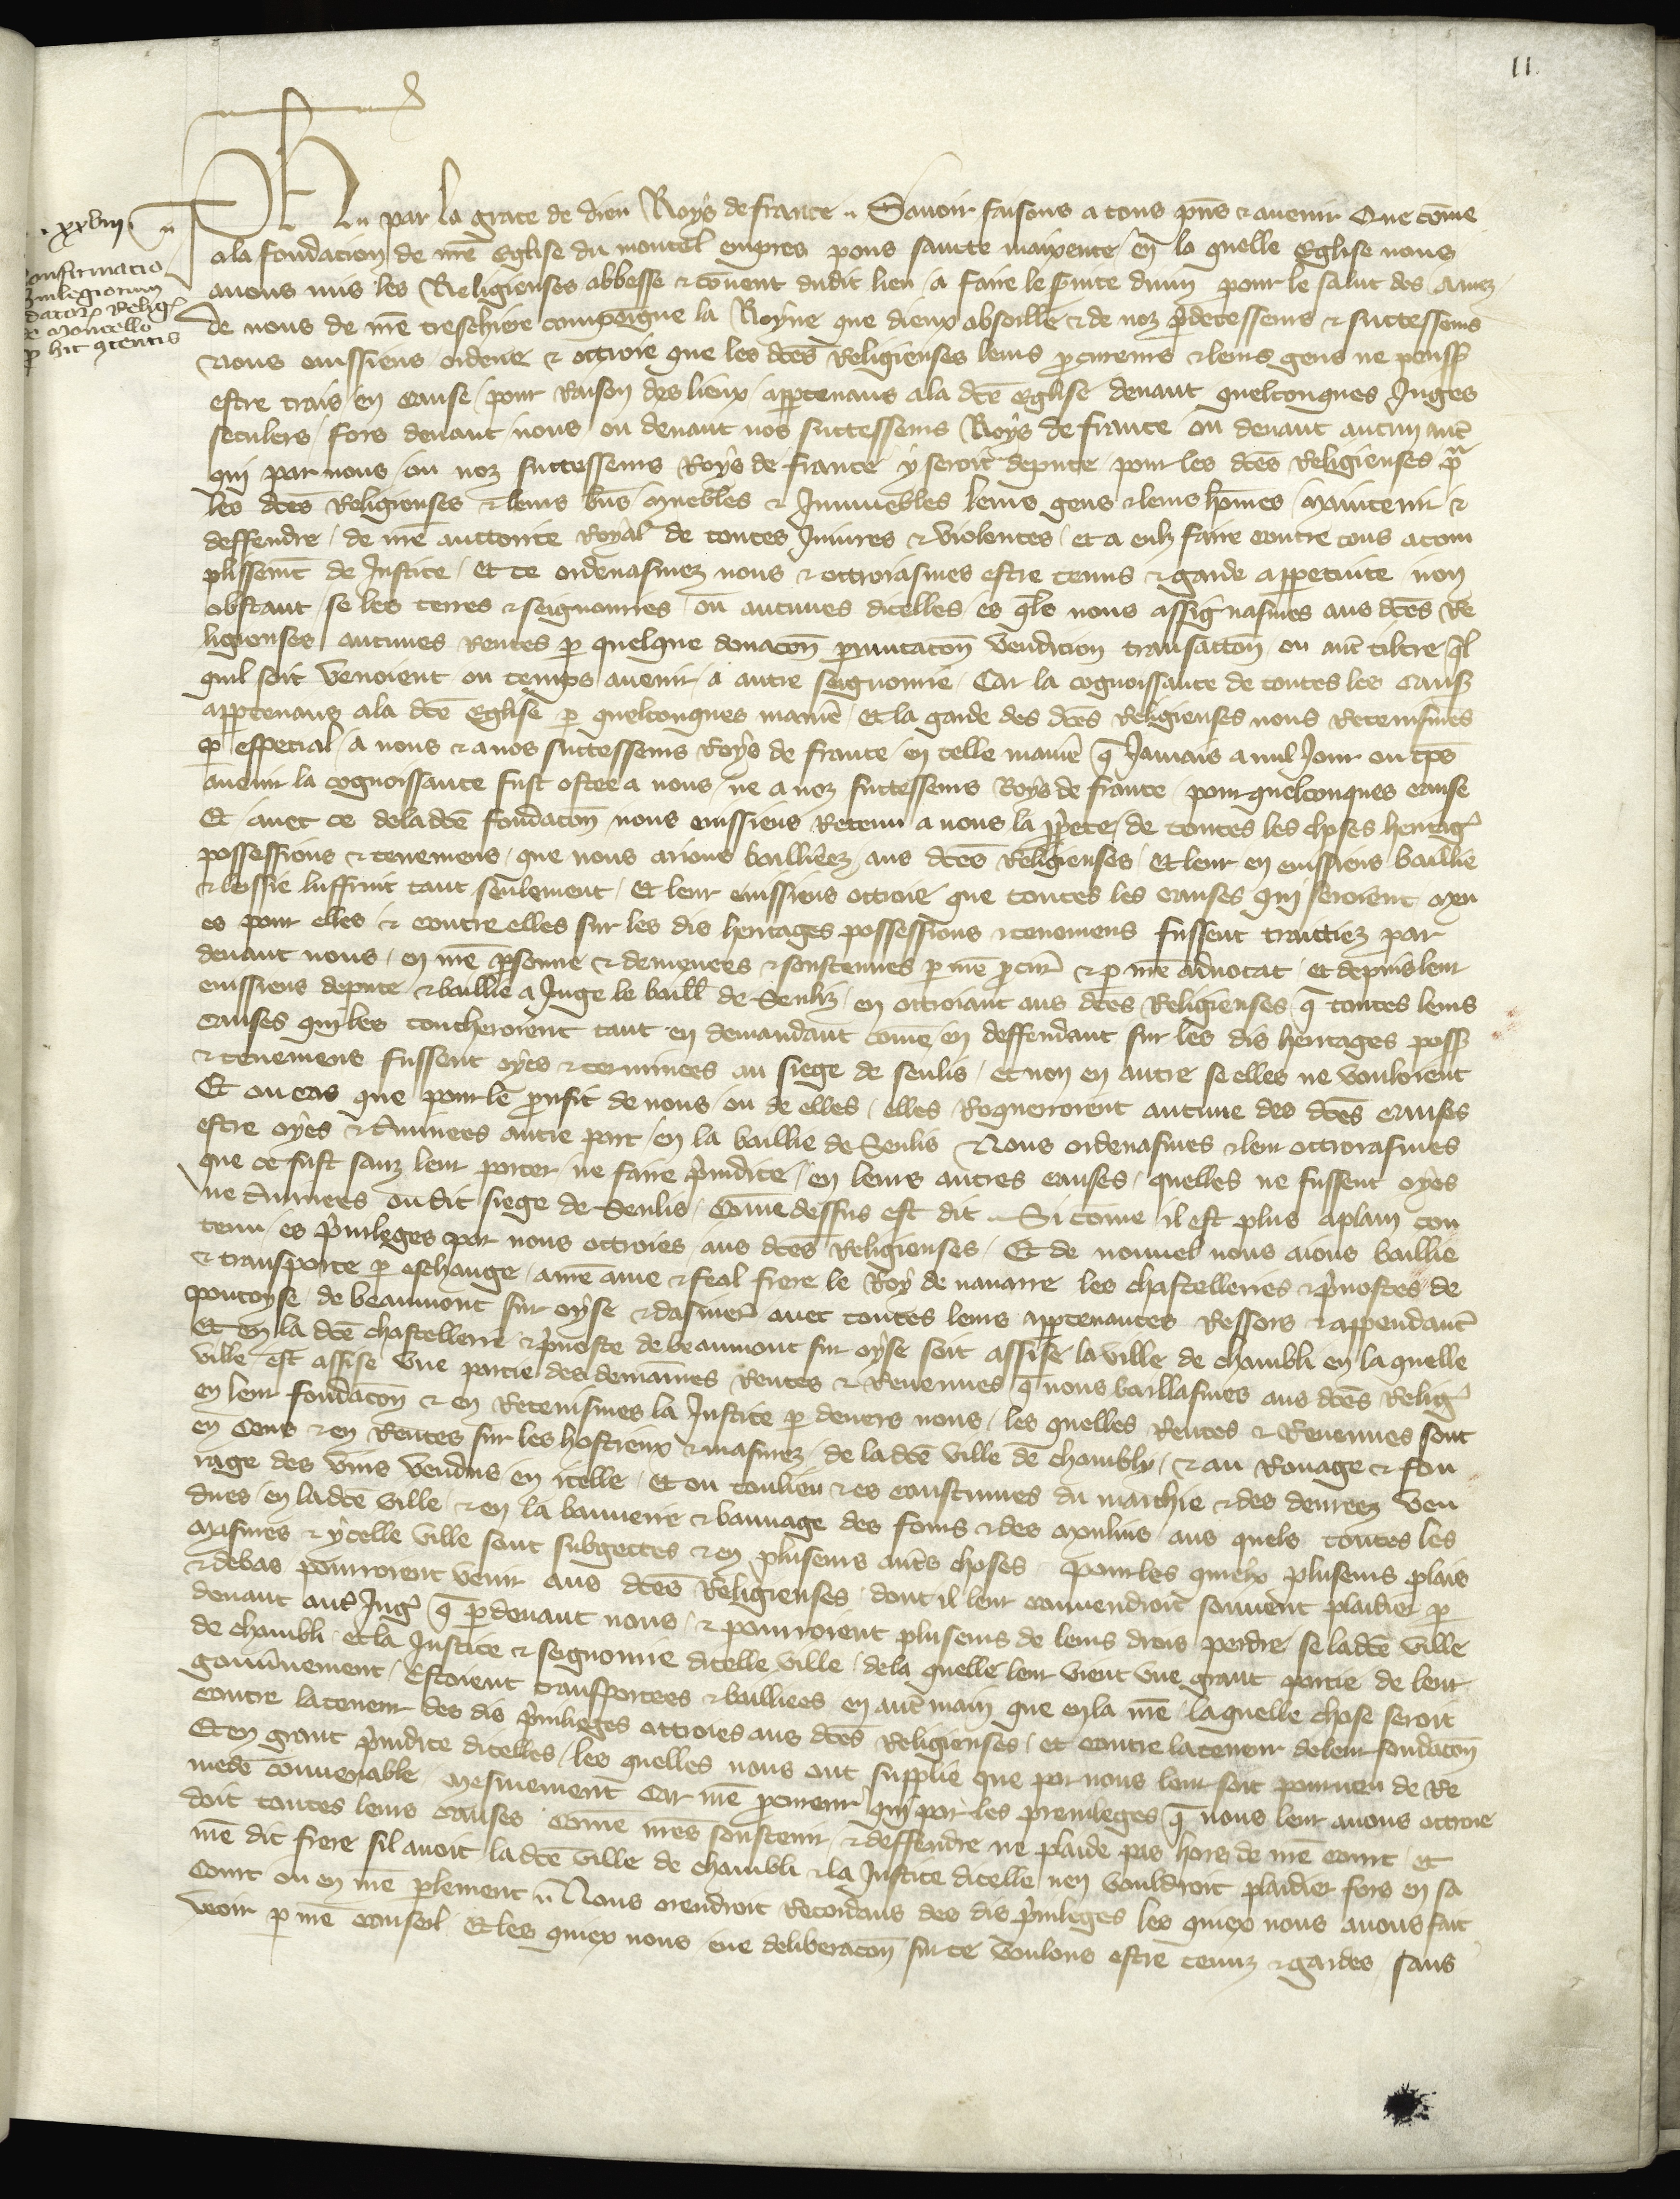 11
Ph par la grace de dieu Roys de france Savoir faisons a tous pñs & avenir Que cõme
xxviii
ala fondacion de nrẽ Eglise du moncel empres pons sainte maixence en la quelle Eglise nous
onfirmacio
avons mis les Religieuses abbesse & couvent dudit lieu a faire le service divin pour le salut des Ames
vilegiorum
datorz Relig
de nous de nrẽ treschiere compaigne la Royne que dieux absoille & de noz predecesseurs & successeurs
de moncello
Nous eussiens ordene & ottroie que les dcẽs Religieuses leurs procureurs & leurs gens ne peuss
p hic ctentis
estre trais en cause pour Raison des lieux appartenans ala dcẽ Eglise devant quelconques Juges
seculers fors devant nous ou devant nos successeurs Roys de france ou devant aucun autre
qui par nous ou noz successeurs Roys de france y seroit depute pour les dcẽs Religieuses pr
les dcẽs Religieuses & leurs biens muebles & Immuebles leurs gens & leurs hõmes Maintenir &
deffendre de nrẽ auctorite Royal de toutes Iniures & violences et a eulz faire contre tous acom
plissemẽt de Justice Et ce ordenasmes nous & ottroiasmes estre tenu & garde appertinte non
obstant se les terres & seignouries ou aucunes dicelles es qles nous assignasmes aus dcẽs Re
ligieuses aucunes Rentes p quelque donacõn pmutacõn vendicion transaccõn ou autre tiltre ql
quil soit venoient ou temps avenir a autre seignourie Car la cognoissance de toutes les caus
appartenans ala dcẽ Eglise p quelconques manie Et la garde des dcẽs Religieuses nous Retenismes
p especial a nous & a nos successeurs Roys de france en telle maniẽ q Jamais a nul Jour ou tps
avenir la cognoissance fust ostee a nous ne a noz successeurs Roys de france pour quelconques cause
Et avec ce de la dcẽ fondacõn nous eussiens Retenu a nous la pprete de toutes les choses heritag
possessions & tenemens que nous avions bailliees aus dcẽs Religieuses Et leur en eussiens baillie
& lessie luffruit tant seulement Et leur eussiens ottroie que toutes les causes qui seroient meu
es pour elles & contre elles sur les dis heritages possessions & tenemens fussent traittiez par
devant nous en nrẽ psonne & demenees & soustenues p nrẽ pcur & p nrẽ advocat et depuis leur
eussiens depute & baillie a Juge le baill de Senliz en ottroiant aus dcẽs Religieuses q toutes leurs
causes qui les toucheroient tant en demandant cõme en deffendant sur les dis heritages poss
& tenemens fussent oyes & terminees au siege de senlis et non en autre se elles ne vouloient
Et ou cas que pour le proufit de nous ou de elles elles Requerroient aucune des dcẽs causes
estre oyes & tminees autre part en la baillie de Senlis Nous ordenasmes & leur ottroiasmes
que ce fust sanz leur porter ne faire preiudice en leurs autres causes quelles ne fussent oyes
ne tminees oudit siege de Senlis cõme dessus est dit Si cõme il est plus a plain con
tenu es privileges par nous ottroies aus dcẽs Religieuses Et de nouvel nous aions baillie
& transporte p eschange a nrẽ ame & feal frere le Roy de navarre les chastelleries & prevostes de
pontoyse de beaumont sur oyse & dasnier avec toutes leurs apptenances Ressors & appendanc
Et en la dcẽ chastellerie & prevoste de beaumont sur oyse soit assise la ville de chambli en la quelle
ville est assise une partie des demaines Rentes & Revenues q nous baillasmes aus dcẽs Relig
en leur fondacõn & en Retenismes la Justice p devers nous les quelles Rentes & Revenues sont
en Cens & en Rentes sur les hostieux & masures de la dcẽ ville de chambly & au Rouage & fou
rage des vins vendus en icelle et ou toulieu & es coustumes du marchie & des denrees ven
dues en ladcẽ ville & en la bannerie & bannage des fours & des moulins aus quels toutes les
Masures & ycelle ville sont subgettes & en pluseurs autres choses pour les quiex pluseurs plais
& debas pourroient venir aus dcẽs Religieuses dont il leur convendroit souvent plaidier p
devant autres Jug q p devant nous & pourroient pluseurs de leurs drois perdre se la dcẽ ville
de chambli et la Justice & seignourie dicelle ville de la quelle leur vient une grant partie de leur
gouvernement Estoient transportees & bailliees en autre main que en la nrẽ la quelle chose seroit
contre la teneur des dis privileges ottroies aus dcẽs Religieuses et contre la teneur de leur fondacõn
Et en grant preiudice dicelles les quelles nous ont supplie que par nous leur soit pourveu de Re
mede convenable Mesmement Car nrẽ procureur qui par les previleges q nous leur avons ottroie
doit toutes leurs causes cõme nrẽs soustenir & deffendre ne plaide pas hors de nrẽ court et
nrẽ dit frere sil avoit ladcẽ ville de chambli & la Justice dicelle nen vouldroit plaidier fors en sa
Court ou en nrẽ plement Nous orendroit Recordans des dis privileges les quiex nous avons fait
veoir p nrẽ conseil Et les quiex nous eue deliberacõn sur ce voulons estre tenuz & gardes sans